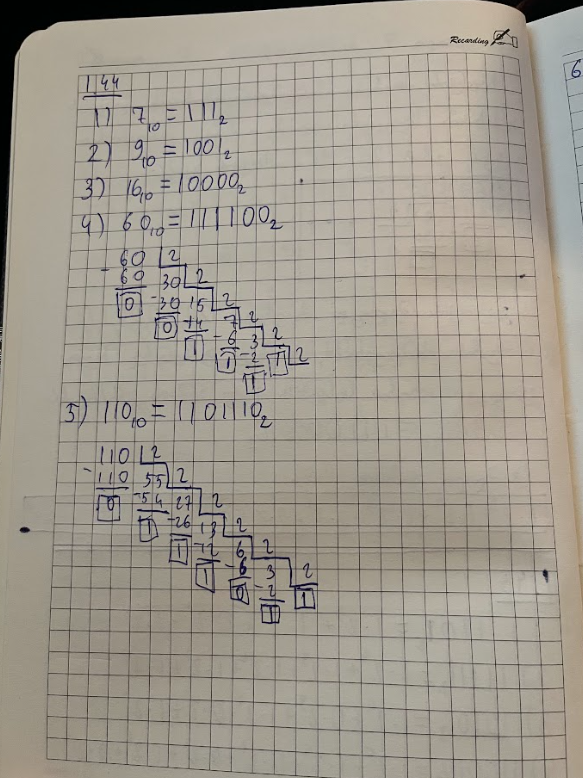 Recarding
6
1.44
1) 7₁₀ = 111₂
2) 9₁₀ = 1001₂
3) 16₁₀ = 10000₂
4) 60₁₀ = 111100₂
60 2
- 60 30 2
0 - 30 15 2
0 - 14 7 2
1 - 6 3 2
1 - 2 1 2
1
5) 110₁₀ = 1101110₂
110 2
- 110 55 2
0 - 54 27 2
1 - 26 13 2
1 - 12 6 2
1 - 6 3 2
0 - 2 1
1